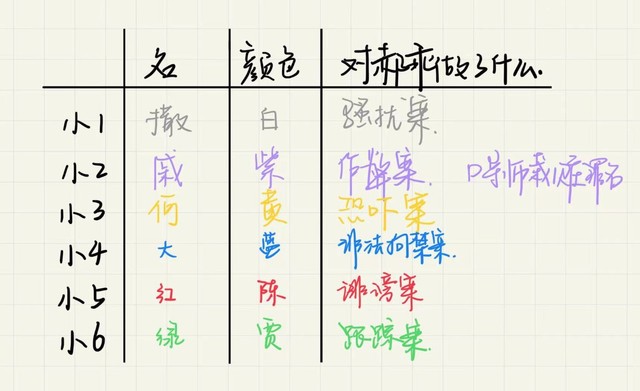 名 颜色 对郝球做了什么.
小1 撒 白 骚扰案.
小2 戚 紫 作弊案. 口导师栽赃罪名
小3 何 黄 恐吓案
小4 大 蓝 非法拘禁案.
小5 红 陈 诽谤案
小6 绿 贾 跟踪案.